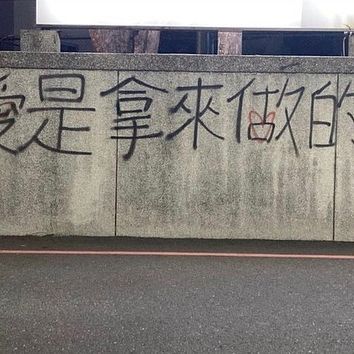 愛是拿來做的